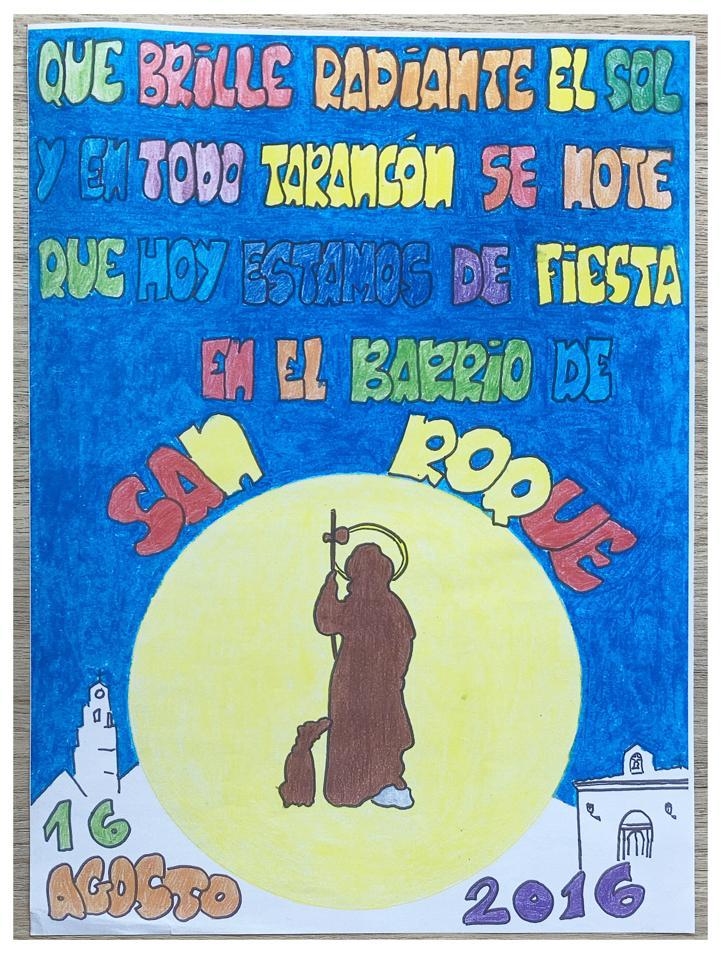 QUE BRILLE RADIANTE EL SOL
Y EN TODO TARANCÓN SE NOTE
QUE HOY ESTAMOS DE FIESTA
EN EL BARRIO DE
SAN ROQUE
16
AGOSTO 2016